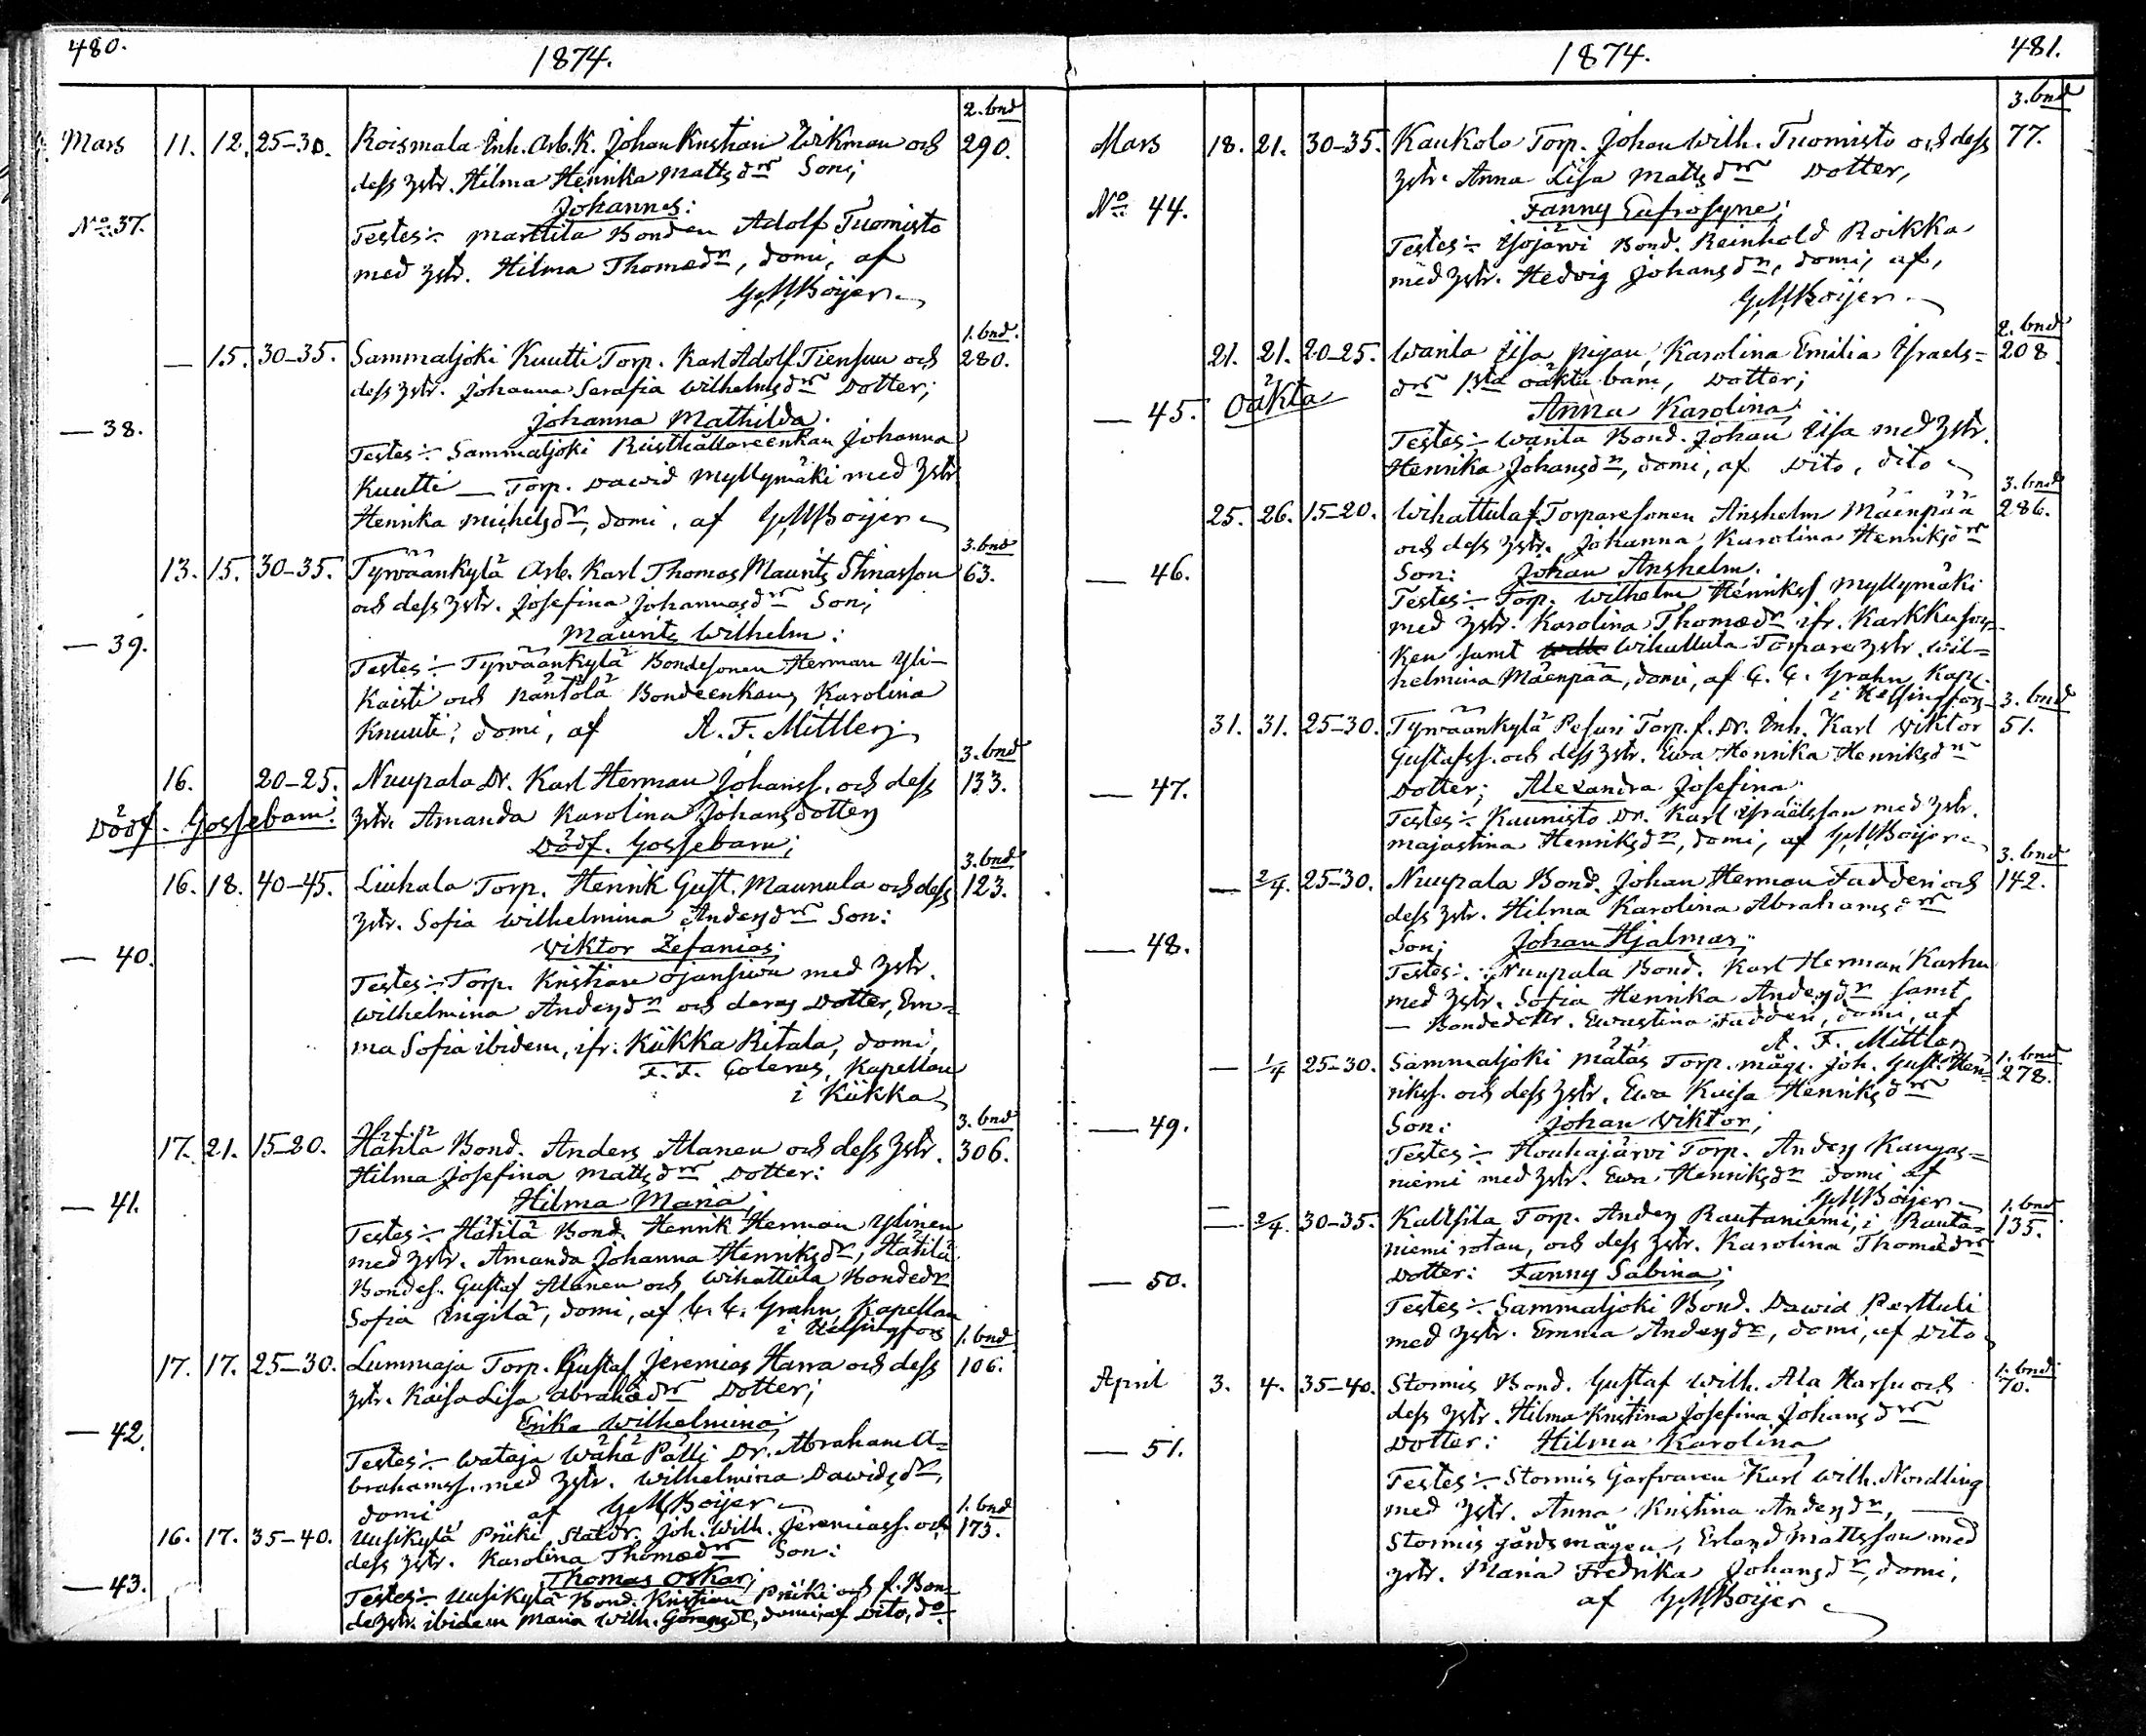 480.
1874.
2. bnd
Mars 11. 12. 25-30. Roismala Inh. Arb. K. Johan Kristian Wikman och 290.
dess hstr. Hilma Henrika Mattsdr Son;
Johannes:
No 37.
Testes:- Marttila Bonden Adolf Tuomisto
med hstr. Hilma Thomædr, domi, af
G M Boijer
1. bnd.
— 15. 30-35. Sammaljoki Kuutti Torp. Karl Adolf Tiensuu och 280.
dess hstr. Johanna Serafia Wilhelmsdr Dotter;
Johanna Mathilda.
— 38.
Testes:- Sammaljoki Rusthållareenkan Johanna
Kuutti — Torp. Dawid Myllymäki med hstr
Henrika Michelsdr, domi, af G M Boijer
3. bnd
13. 15. 30-35. Tyrväänkylä Arb. Karl Thomas Maurits Stinasson 63.
och dess hstr. Josefina Johannasdr Son;
Maurits Wilhelm:
— 39.
Testes:- Tyrväänkylä Bondesonen Herman Yli-
Kaisti och Päntölä Bondeenkan, Karolina
Knuuti, domi, af A. F. Mittler
3. bnd
16. 20-25. Nuupala Dr. Karl Herman Johanss. och dess 133.
Dödf. Gossebarn. hstr. Amanda Karolina Johansdotter
Dödf. Gossebarn;
3. bnd
16. 18. 40-45. Liuhala Torp. Henrik Gust. Maunula och dess 123.
hstr. Sofia Wilhelmina Andersdr Son:
Viktor Zefanias;
— 40.
Testes:- Torp. Kristian Ojansivu med hstr.
Wilhelmina Andersdr och deras Dotter, Em=
ma Sofia ibidem, ifr. Kiikka Ritala, domi,
F. F. Kapellan
i Kiikka
3. bnd
17. 21. 15-20. Hätilä Bond. Anders Alanen och dess hstr. 306.
Hilma Josefina Mattsdr Dotter:
Hilma Maria;
— 41.
Testes:- Hätilä Bond. Henrik Herman Ylinen
med hstr. Amanda Johanna Henriksdr, Hätilä
Bondes. Gustaf Alanen och Wihattula Bondedr.
Sofia Ingilä, domi, af C. C. Grahn, Kapellan
i Helsingfors
1. bnd
17. 17. 25-30. Lummaja Torp. Gustaf Jeremias Harra och dess 106.
hstr. Kaisa Lisa Abrahadr Dotter;
Erika Wilhelmina;
— 42.
Testes:- Wataja Wähä Pälli Dr. Abraham A=
brahamss. med hstr. Wilhelmina Dawidsdr,
domi, af G M Boijer
1. bnd
16. 17. 35-40. Uusikylä Priiki Statdr. Joh. Wilh. Jeremiass. och 173.
dess hstr. Karolina Thomædr Son:
Thomas Oskar;
— 43.
Testes:- Uusikylä Bond. Kristian Priiki och f. Bon=
dehstr. ibidem Maria Wilh. Göransdr, domi, af Dito, do.
1874.
481.
3. bnd
Mars 18. 21. 30-35. Kaukolo Torp. Johan Wilh. Tuomisto och dess 77.
hstr. Anna Lisa Mattsdr Dotter,
No 44.
Fanny Eufrosyne;
Testes:- Yojärvi Bond. Reinhold Roikka
med hstr. Hedvig Johansdr, domi, af,
G M Boijer
2. bnd
21. 21. 20-25. Warila Iisa pigan, Karolina Emilia Israels= 208.
— 45. Oäkta
dr 1sta oäkta barn, Dotter;
Anna Karolina;
Testes:- Warila Bond. Johan Iisa med hstr.
Henrika Johansdr, domi, af Dito, dito
3. bnd
25. 26. 15-20. Wihattula Torparesonen Anshelm Mäenpää 286.
och dess hstr. Johanna Karolina Henriksdr
— 46.
Son: Johan Anshelm.
Testes:- Torp. Wilhelm Henrikss Myllymäki
med hstr. Karolina Thomædr ifr. Karkku soc-
ken samt Wihattula Torpare hstr. Wil=
helmina Mäenpää, domi, af C. C. Grahn Kapl.
i Helsingfors
3. bnd
31. 31. 25-30. Tyrväänkylä Pesuri Torp. f. Dr. Inh. Karl Viktor 51.
Gustafss. och dess hstr. Ewa Henrika Henriksdr
— 47.
Dotter; Alexandra Josefina.
Testes:- Kaunisto Dr. Karl Israelsson med hstr.
Majastina Henriksdr, domi, af G M Boijer
3. bnd
— 2/4. 25-30. Nuupala Bond. Johan Herman Fadderi och 142.
dess hstr. Hilma Karolina Abrahamsdr
— 48.
Son; Johan Hjalmar;
Testes:- Nuupala Bond. Karl Herman Karhu
med hstr. Sofia Henrika Andersdr samt
— Bondedottr. Ewastina Fadderi, domi, af
A. F. Mittler
1. bnd
— 1/4 25-30. Sammaljoki Mätäs Torp. måg. Joh. Gust. Hen= 278.
rikss. och dess hstr. Ewa Kaisa Henriksdr
— 49.
Son: Johan Viktor;
Testes:- Houhajärvi Torp. Anders Kangas=
niemi med hstr. Ewa Henriksdr domi, af
G M Boijer
1. bnd
— 2/4. 30-35. Kallsila Torp. Anders Rautaniemi, i Rauta= 135.
niemi rotan, och dess hstr. Karolina Thomædr
— 50.
Dotter: Fanny Sabina;
Testes:- Sammaljoki Bond. Dawid Perttuli
med hstr. Emma Andersdr, domi, af Dito
1. bnd
April 3. 4. 35-40. Stormis Bond. Gustaf Wilh. Ala Harsu och 70.
dess hstr. Hilma Kristina Josefina Johansdr
— 51.
Dotter: Hilma Karolina
Testes:- Stormis Garfvaren Karl Wilh. Nordling
med hstr. Anna Kristina Andersdr, —
Stormis gårdsmågen, Erland Mattsson med
hstr. Maria Fredrika Johansdr, domi,
af G M Boijer